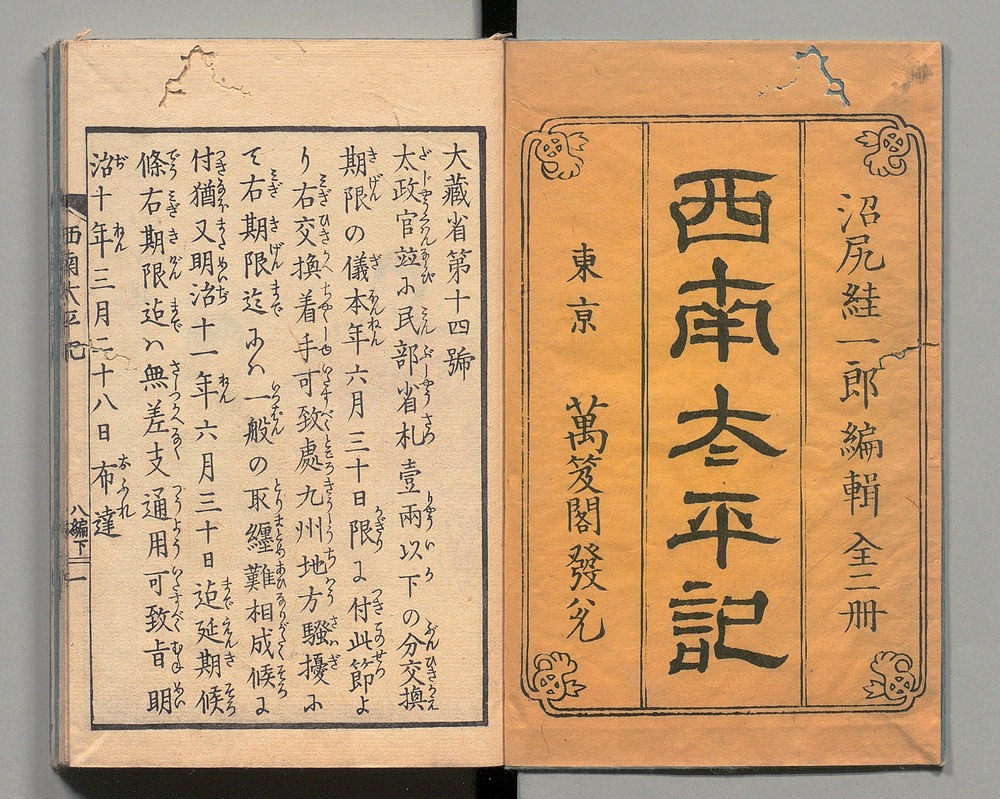 沼尻絓一郎編輯 全二冊
西南太平記
東京 萬笈閣發兌
大藏省第十四號
太政官並ニ民部省札壹兩以下の分交換
期限の儀本年六月三十日限に付此節よ
り右交換着手可致處九州地方騷擾ニ
て右期限迄ニハ一般の取纏難相成候に
付猶又明治十一年六月三十日迄延期候
條右期限迄ハ無差支通用可致旨明
治十年三月二十八日布達
西南太平記 八編下 一